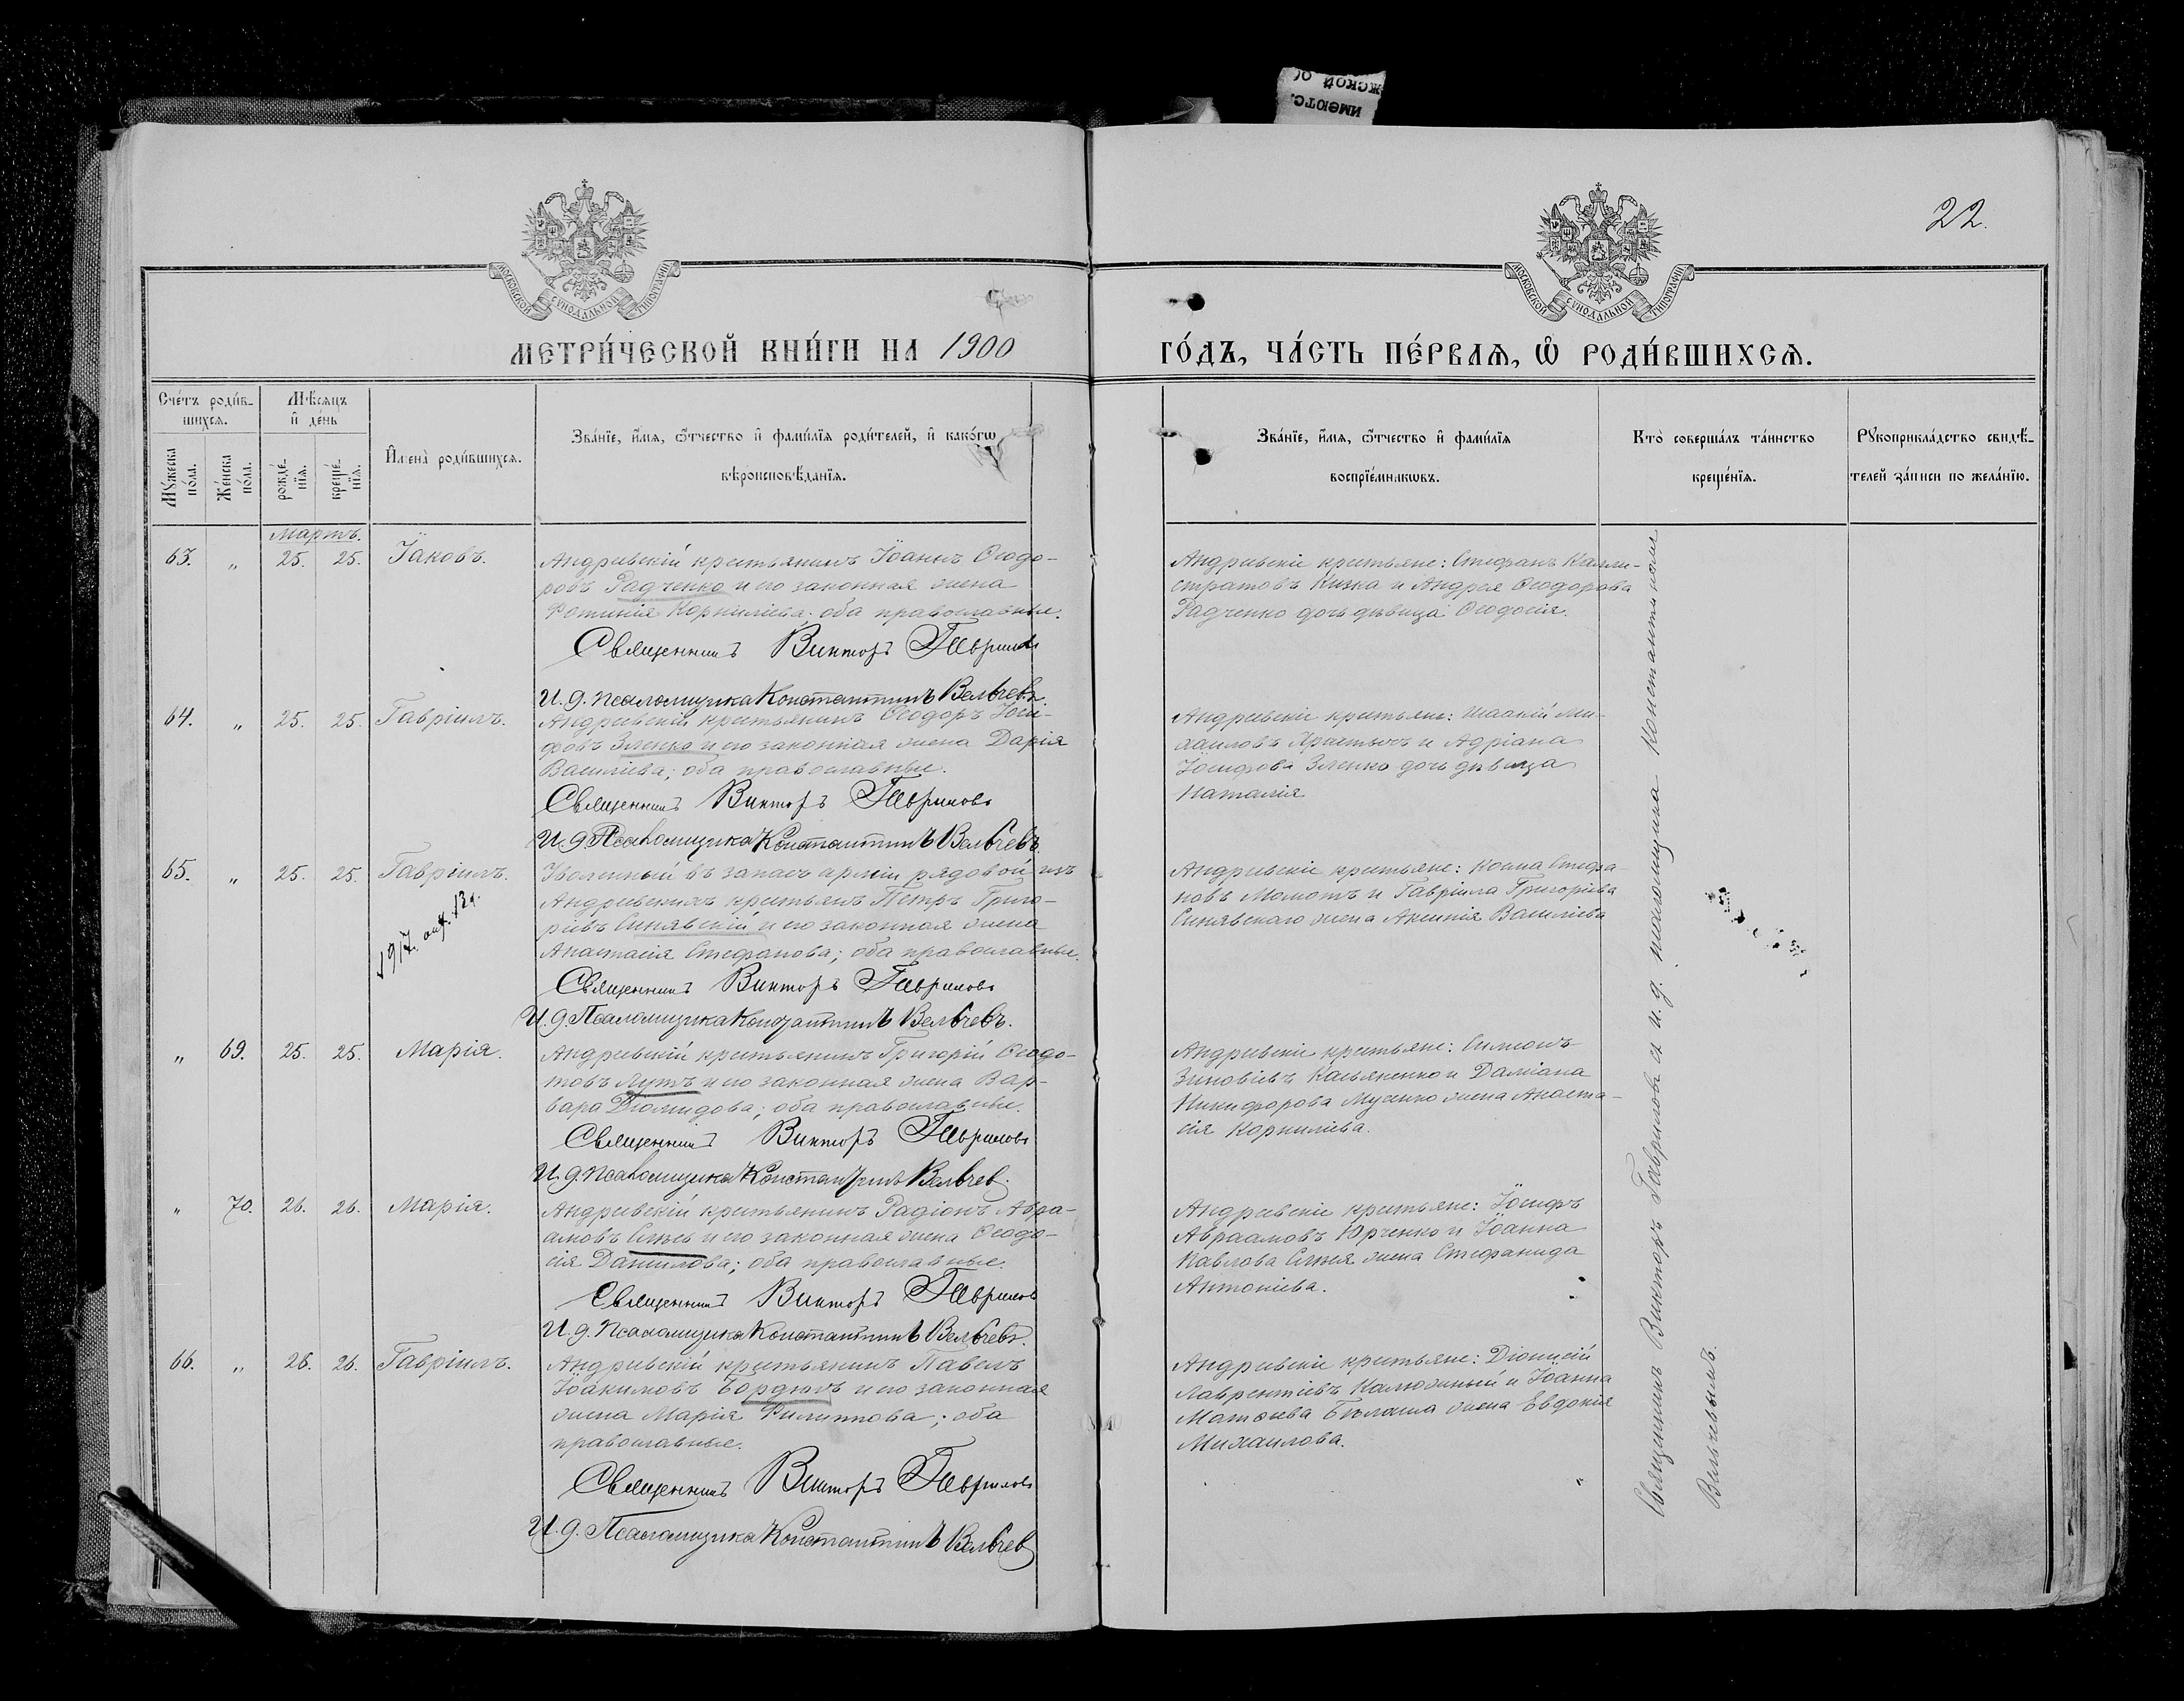 ИМѢЮТС.
ЖСКОЙ ОС
22.
МОСКОВСКОЙ СѴНОДАЛЬНОЙ ТИПОГРАФІИ
МОСКОВСКОЙ СѴНОДАЛЬНОЙ ТИПОГРАФІИ
МЕТРИ́ЧЕСКОЙ КНИ́ГИ НА 1900 ГО́ДЪ, ЧА́СТЬ ПЕ́РВАѦ, Ѽ РОДИ́ВШИХСѦ.
Сче́тъ роди́в-
шихсѧ.
Мѣ́сѧцъ
и҆ де́нь
Му́жеска по́ла.
Же́нска по́ла.
рожде́нїѧ.
креще́нїѧ.
И҆мена̀ роди́вшихсѧ.
Зва́нїе, и҆́мѧ, ѻ҆́тчество и҆ фами́лїѧ роди́телей, и҆ како́гѡ
вѣроисповѣ́данїѧ.
Зва́нїе, и҆́мѧ, ѻ҆́тчество и҆ фами́лїѧ
воспрїе́мниковъ.
Кто̀ соверша́лъ та́инство
креще́нїѧ.
Рꙋкоприкла́дство свидѣ́-
телей за́писи по жела́нїю.
Мартъ.
63. „ 25. 25. Іаковъ.
Андреевскій крестьянинъ Іоаннъ Ѳеодо-
ровъ Радченко и его законная жена
Фотинія Корниліева; оба православные.
Священникъ Викторъ Гавриловъ
И. д. псаломщика Константинъ Вельчевъ.
Андреевскіе крестьяне: Стефанъ Калли-
стратовъ Кизка и Андрея Ѳеодорова
Радченко дочь дѣвица Ѳеодосія.
64. „ 25. 25. Гавріилъ.
Андреевскій крестьянинъ Ѳеодоръ Іоси-
фовъ Зленко и его законная жена Дарія
Василіева; оба православные.
Священникъ Викторъ Гавриловъ
И. д. Псаломщика Константинъ Вельчевъ.
Андреевскіе крестьяне: Исаакій Ми-
хаиловъ и Адріана
Іосифова Зленко дочь дѣвица
Наталія
65. „ 25. 25. Гавріилъ.
1917.
Уволенный въ запасъ арміи рядовой изъ
Андреевскихъ крестьянъ Петръ Григо-
ріевъ Синявскій и его законная жена
Анастасія Стефанова; оба православные.
Священникъ Викторъ Гавриловъ
И. д. Псаломщика Константинъ Вельчевъ.
Андреевскіе крестьяне: Косма Стефа-
новъ Момотъ и Гавріила Григоріева
Синявскаго жена Аксинія Василіева
„ 69. 25. 25. Марія.
Андреевскій крестьянинъ Григорій Ѳеодо-
товъ Лутъ и его законная жена Вар-
вара Діомидова; оба православные.
Священникъ Викторъ Гавриловъ
И. д. Псаломщика Константинъ Вельчев.
Андреевскіе крестьяне: Симеонъ
Зиновіевъ Касьяненко и Даміана
Никифорова Мусенко жена Анаста-
сія Корниліева.
„ 70. 26. 26. Марія.
Андреевскій крестьянинъ Радіонъ Авра-
амовъ и его законная жена Ѳеодо-
сія Данилова; оба православные.
Священникъ Викторъ Гавриловъ
И. д. Псаломщика Константинъ Вельчевъ.
Андреевскіе крестьяне: Іосифъ
Авраамовъ Юрченко и Іоанна
Павлова жена Стефанида
Антоніева.
66. „ 26. 26. Гавріилъ.
Андреевскій крестьянинъ Павелъ
Іоакимовъ Бордюгъ и его законная
жена Марія Филиппова; оба
православные.
Священникъ Викторъ Гавриловъ
И. д. Псаломщика Константинъ Вельчев
Андреевскіе крестьяне: Діонисій
Лаврентіевъ Калюжный и Іоанна
Матѳіева Бѣлаша жена Евдокія
Михаилова.
Священникъ Викторъ Гавриловъ съ и. д. псаломщика Константиномъ
Вельчевымъ.